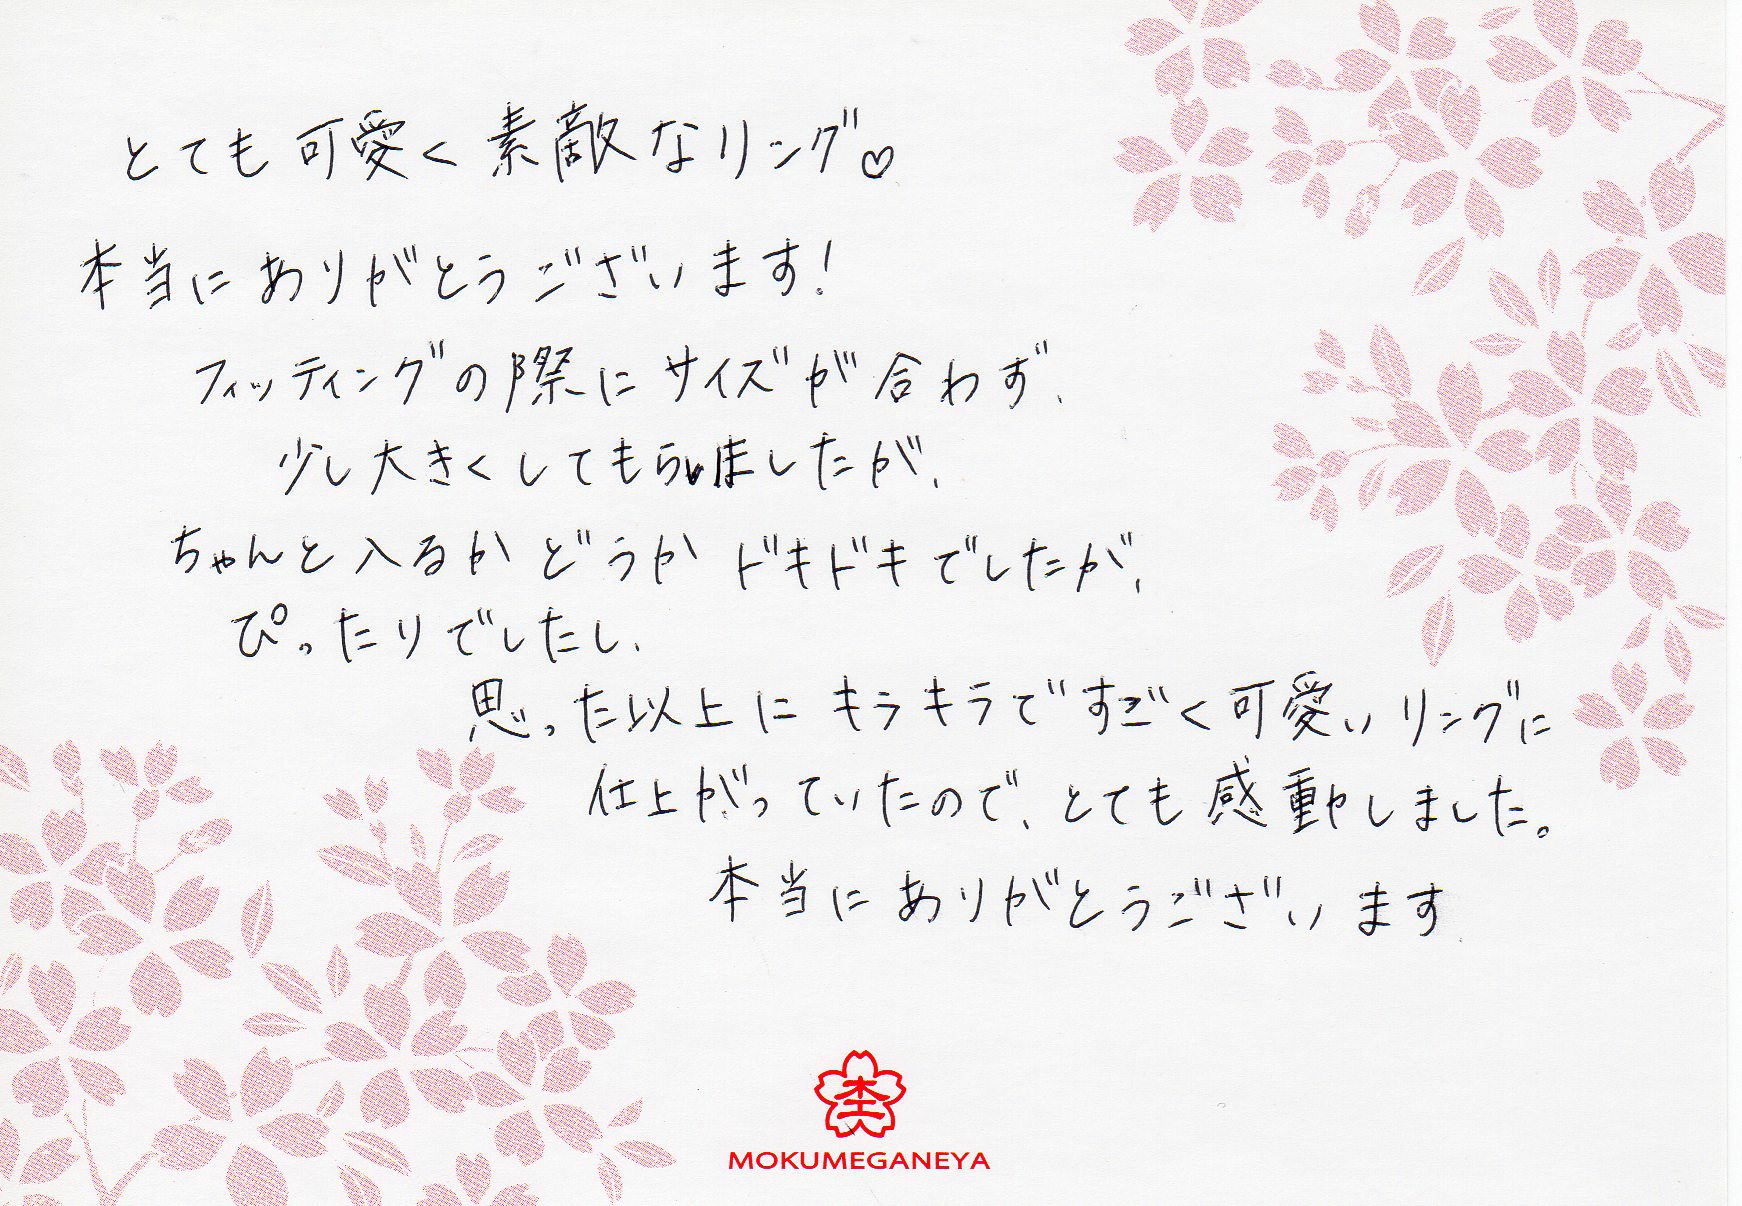 とても可愛く素敵なリング♡
本当にありがとうございます!
フィッティングの際にサイズが合わず、
少し大きくしてもらいましたが、
ちゃんと入るかどうかドキドキでしたが、
ぴったりでしたし、
思った以上にキラキラですごく可愛いリングに
仕上がっていたので、とても感動しました。
本当にありがとうございます
MOKUMEGANEYA